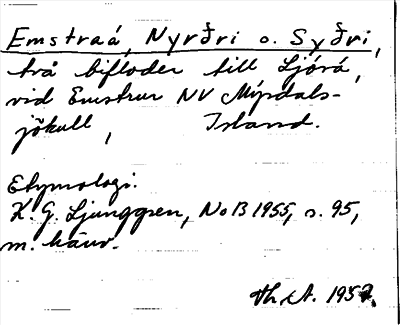 Emstraá, Nyrðri o. Syðri,
två bifloder till Ljórá,
vid Emstrur NV Mýrdals-
jökull, Island.
Etymologi.
K. G. Ljunggren, NoB 1955, s. 95,
m. hänv.
Th. A. 1957.